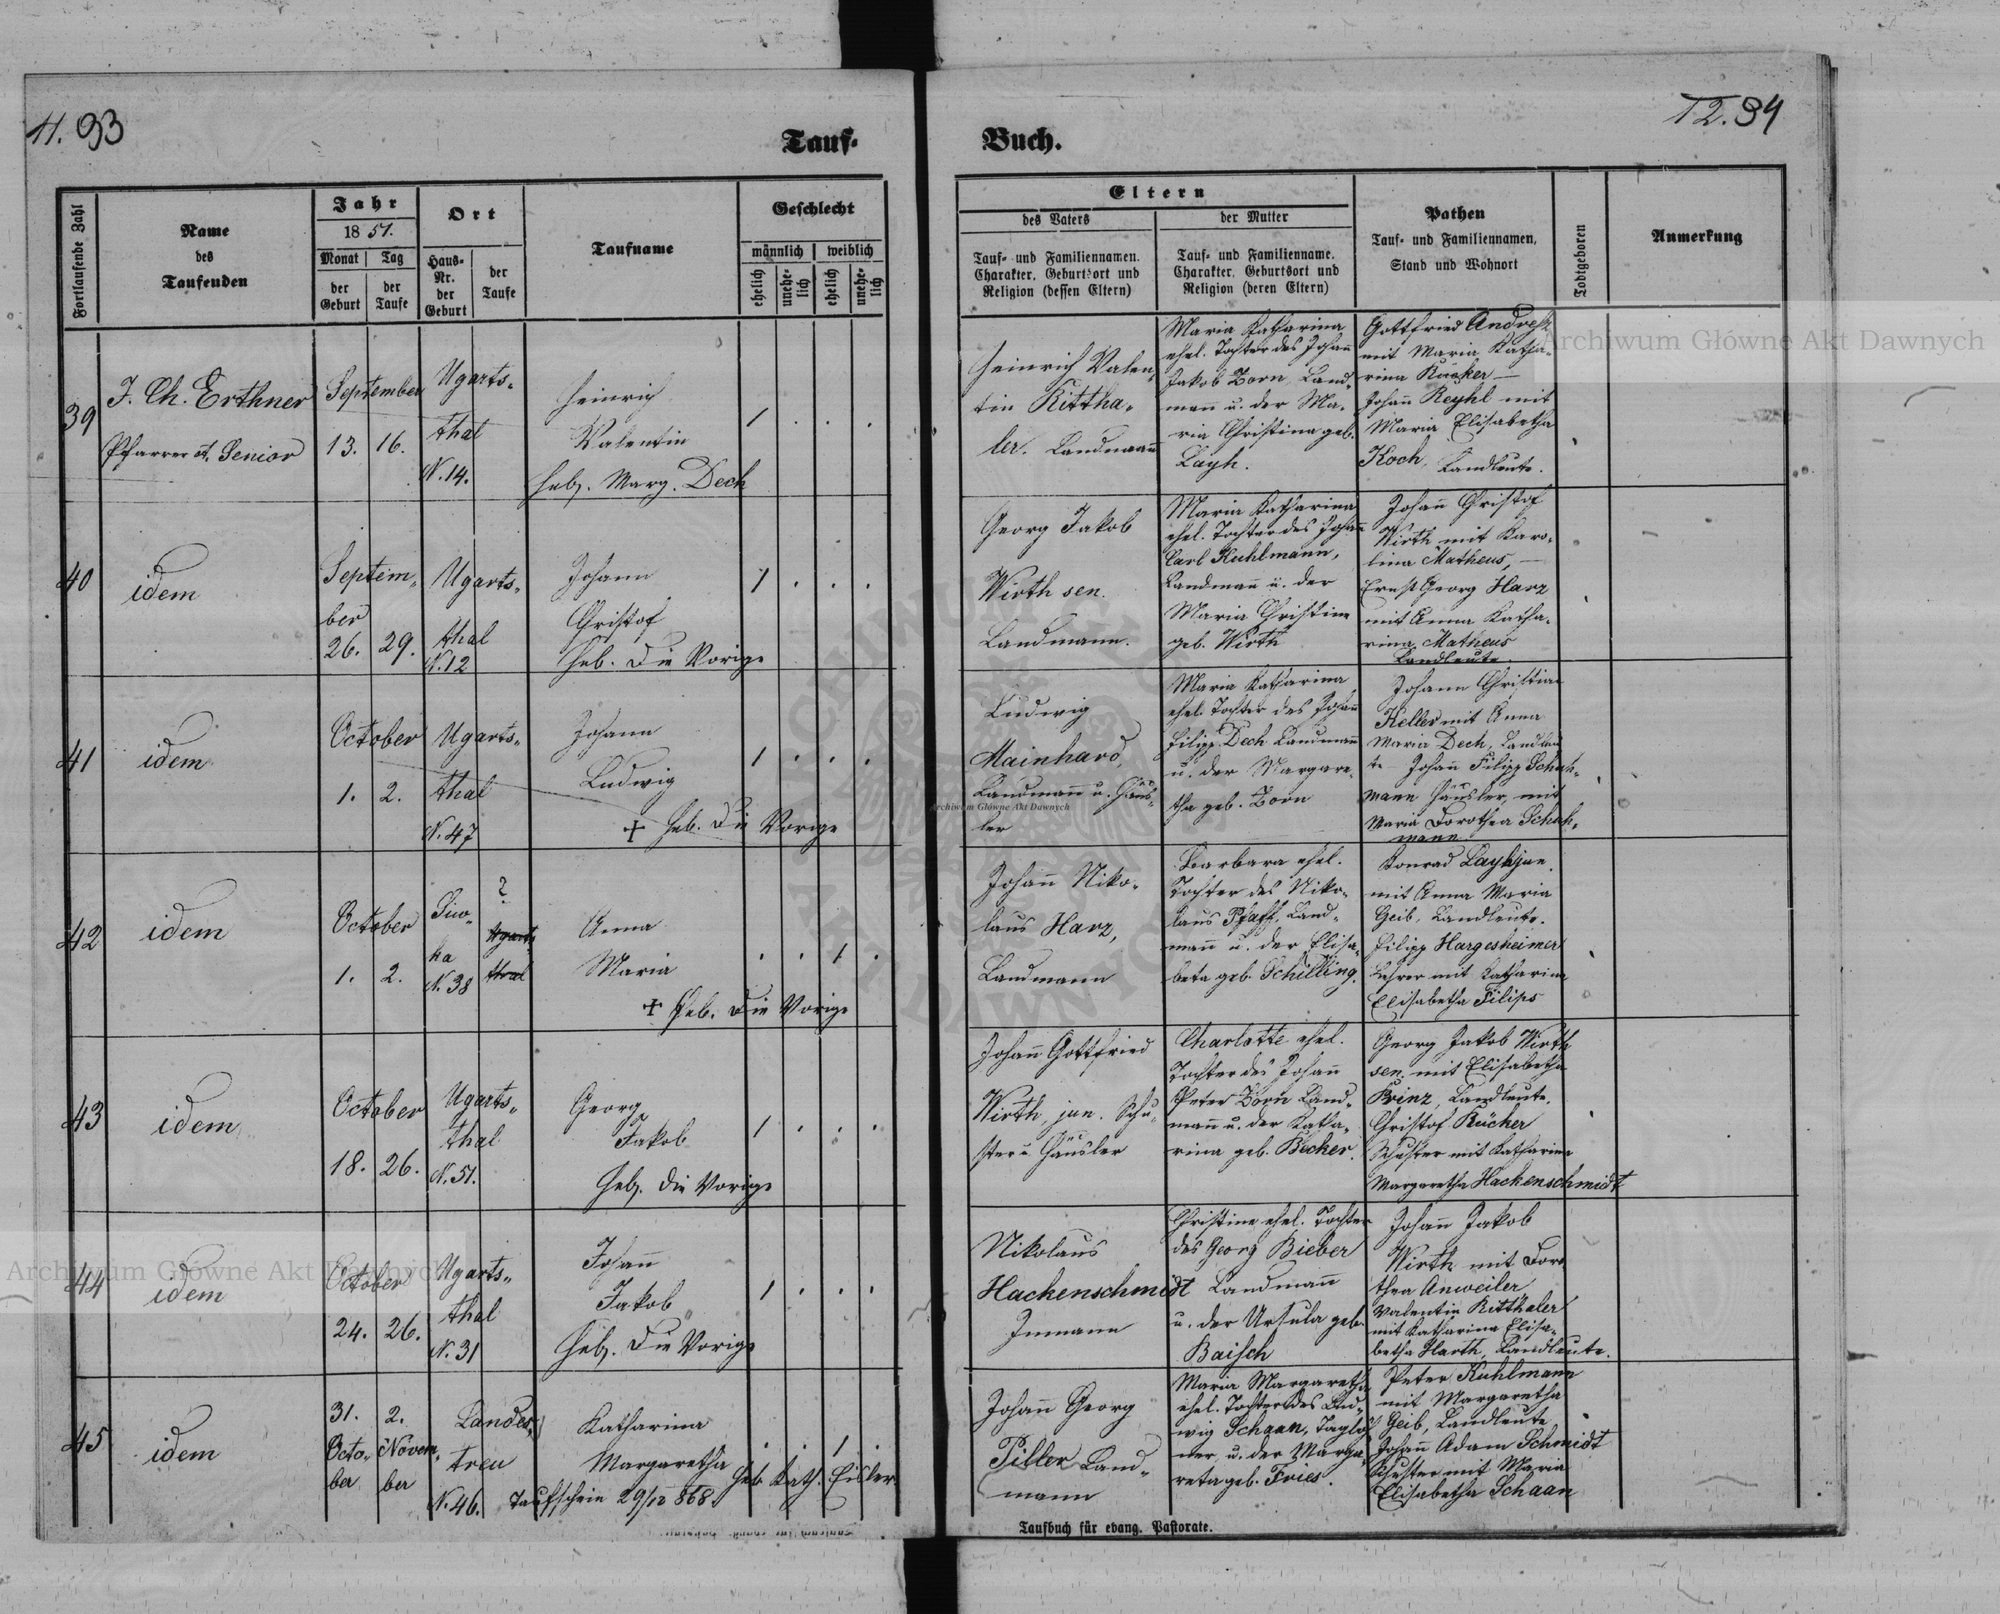 11. 93
12. 94
Tauf-
Buch.
Fortlaufende Zahl
Name
des
Taufenden
Jahr
1851.
Monat
der
Geburt
Tag
der
Taufe
Ort
Haus-
Nr.
der
Geburt
der
Taufe
Taufname
Geschlecht
männlich
weiblich
ehelich
unehe-
lich
ehelich
unehe-
lich
Eltern
des Vaters
Tauf- und Familiennamen.
Charakter, Geburtsort und
Religion (dessen Eltern)
der Mutter
Tauf- und Familienname.
Charakter, Geburtsort und
Religion (deren Eltern)
Pathen
Tauf- und Familiennamen,
Stand und Wohnort
Todtgeboren
Anmerkung
39
J. Ch. Erthner
Pfarrer u. Senior
September
13. 16.
Ugarts-
thal
N. 14.
Heinrich
Valentin
Heb. Marg. Dech
1 . . .
Heinrich Valen-
tin Rittha-
ler. Landmann
Maria Katharina
ehel. Tochter des Johann
Jakob Zorn, Land-
mann u. der Ma-
ria Christina geb.
Layh.
Gottfried
mit Maria Katha-
rina Rücker —
Johann Reyhl mit
Maria Elisabetha
Koch, Landleute.
40
idem
Septem-
ber
26. 29.
Ugarts-
thal
N. 12
Johann
Christof
Heb. Die Vorige
1 . . .
Georg Jakob
Wirth sen.
Landmann.
Maria Katharina
ehel. Tochter des Johann
Carl Kuhlmann,
Landmann u. der
Maria Christine
geb. Wirth
Johann Christof
Wirth mit Karo-
lina Matheus, —
Ernst Georg Harz
mit Anna Katha-
rina Matheus
Landleute.
41
idem
October
1. 2.
Ugarts-
thal
N. 47
Johann
Ludwig
+ Heb. Die Vorige
1 . . .
Ludwig
Mainhard,
Landmann u. Häus-
ler
Maria Katharina
ehel. Tochter des Johann
Filipp Dech Landmann
u. der Margare-
tha geb. Zorn
Johann Christian
Keller mit Anna
Maria Dech, Landleu
te - Johann Filipp Schuh-
mann Häusler, mit
Maria Dorothea Schuh-
mann
42
idem
October
1. 2.
Siw-
ka
N. 38
?
Ugarts
thal
Anna
Maria
+ Heb. Die Vorige
. . 1 .
Johann Niko-
laus Harz,
Landmann
Barbara ehel.
Tochter des Niko-
laus Pfaff, Land-
mann u. der Elisa-
beta geb. Schilling.
Konrad Layh jun.
mit Anna Maria
Geib, Landleute.
Filipp Hargesheimer
Lehrer mit Katharina
Elisabetha Filips
43
idem
October
18. 26.
Ugarts-
thal
N. 51.
Georg
Jakob
Heb. Die Vorige
1 . . .
Johann Gottfried
Wirth, jun. Schu-
ster u. Häusler
Charlotte ehel.
Tochter des Johann
Peter Zorn Land-
mann u. der Katha-
rina geb. Becker.
Georg Jakob Wirth
sen. mit Elisabetha
Prinz, Landleute.
Christof Rücher
Schuster mit Katharina
Margaretha Hackenschmidt
44
idem
October
24. 26.
Ugarts-
thal
N. 31
Johann
Jakob
Heb. Die Vorige
1 . . .
Nikolaus
Hackenschmidt
Inmann
Christine ehel. Tochter
des Georg Bieber
Landmann
u. der Ursula geb.
Baisch
Johann Jakob
Wirth mit Doro
thea Anweiler
Valentin Ritthaler
mit Katharina Elisa-
betha Harth, Landleute.
45
idem
31.
Octo-
ber
2.
Novem-
ber
Landes-
treu
N. 46.
Katharina
Margaretha
Heb. Kath. Eisler
Taufschein 29/12 868
. . 1 .
Johann Georg
Piller Land-
mann
Maria Margaretha
ehel. Tochter des Lud-
wig Schaan, Taglöh
ner, u. der Marga-
reta geb. Fries.
Peter Kuhlmann
mit Margaretha
Geib, Landleute
Johann Adam Schmidt
Schuster mit Maria
Elisabetha Schaan
Taufbuch für evang. Pastorate.
Archiwum Główne Akt Dawnych
Archiwum Główne Akt Dawnych
Archiwum Główne Akt Dawnych